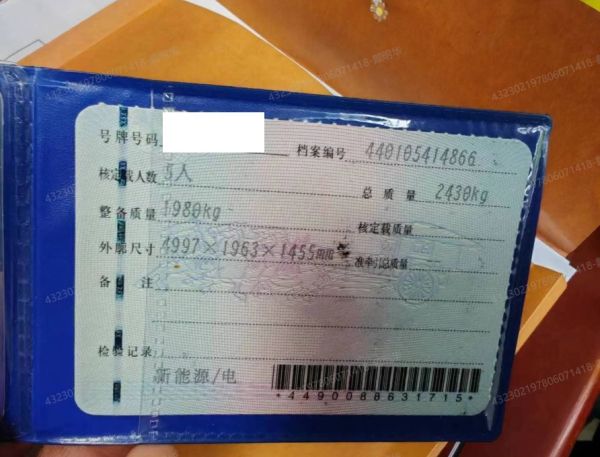 号牌号码
档案编号 440105414866
核定载人数 5人
总质量 2430kg
整备质量 1980kg
核定载质量
外廓尺寸 4997×1963×1455mm
准牵引总质量
备注
检验记录
新能源/电
*4490088631715*
432302197806071418
432302197806071418
432302197806071418
432302197806071418